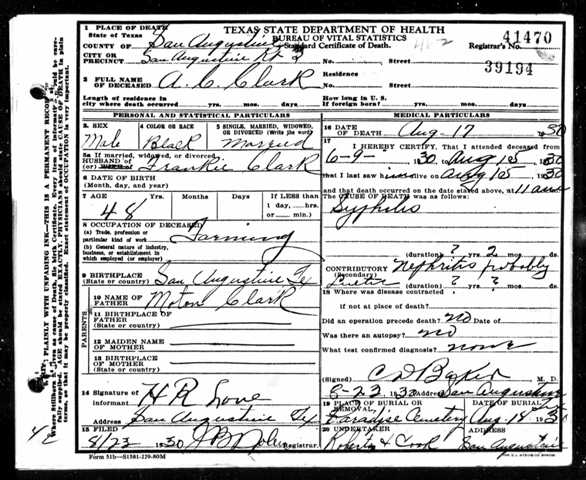 TEXAS STATE DEPARTMENT OF HEALTH
BUREAU OF VITAL STATISTICS
Standard Certificate of Death.
41470
Registrar's No.
39194
1 PLACE OF DEATH
State of Texas
COUNTY OF San Augustine
CITY OR PRECINCT San Augustine Rt 2
No. Street
2 FULL NAME OF DECEASED A. C. Clark
Residence No. Street
Length of residence in city where death occurred yrs. mos. days.
How long in U. S. if foreign born? yrs. mos. days.
PERSONAL AND STATISTICAL PARTICULARS
3. SEX Male
4 COLOR OR RACE Black
5 SINGLE, MARRIED, WIDOWED, OR DIVORCED (Write the word) Married
5a If married, widowed, or divorced, HUSBAND OF (or) WIFE OF Frankie Clark
6 DATE OF BIRTH
(Month, day, and year)
7 AGE 48 Years Months Days If LESS than 1 day, hrs. or min.
8 OCCUPATION OF DECEASED
(a) Trade, profession or particular kind of work Farming
(b) General nature of industry, business, or establishment in which employed (or employer)
9 BIRTHPLACE (State or country) San Augustine Tex
PARENTS
10 NAME OF FATHER Moton Clark
11 BIRTHPLACE OF FATHER (State or country)
12 MAIDEN NAME OF MOTHER
13 BIRTHPLACE OF MOTHER (State or country)
14 Signature of informant H R Love
Address San Augustine Tex
15 FILED 8/22 1930 Registrar.
Form 51b-S1381-229-80M
MEDICAL PARTICULARS
16 DATE OF DEATH Aug-17 1930
17 I HEREBY CERTIFY, That I attended deceased from
6-9- 1930, to Aug 15 1930
that I last saw alive on Aug 15, 1930
and that death occurred on the date stated above, at 11 a m
THE CAUSE OF DEATH was as follows:
Syphilis
(duration) ? yrs. 2 mos.
CONTRIBUTORY (Secondary) Nephritis probably
(duration) ? ?
18 Where was disease contracted
if not at place of death?
Did an operation precede death? no Date of
Was there an autopsy? no
What test confirmed diagnosis? none
(Signed) M. D.
8-22 1930 San Augustine
19 PLACE OF BURIAL OR REMOVAL, Paradise Cemetery
DATE OF BURIAL Aug 18 1930
20 UNDERTAKER Roberts & Cook
ADDRESS San Augustine